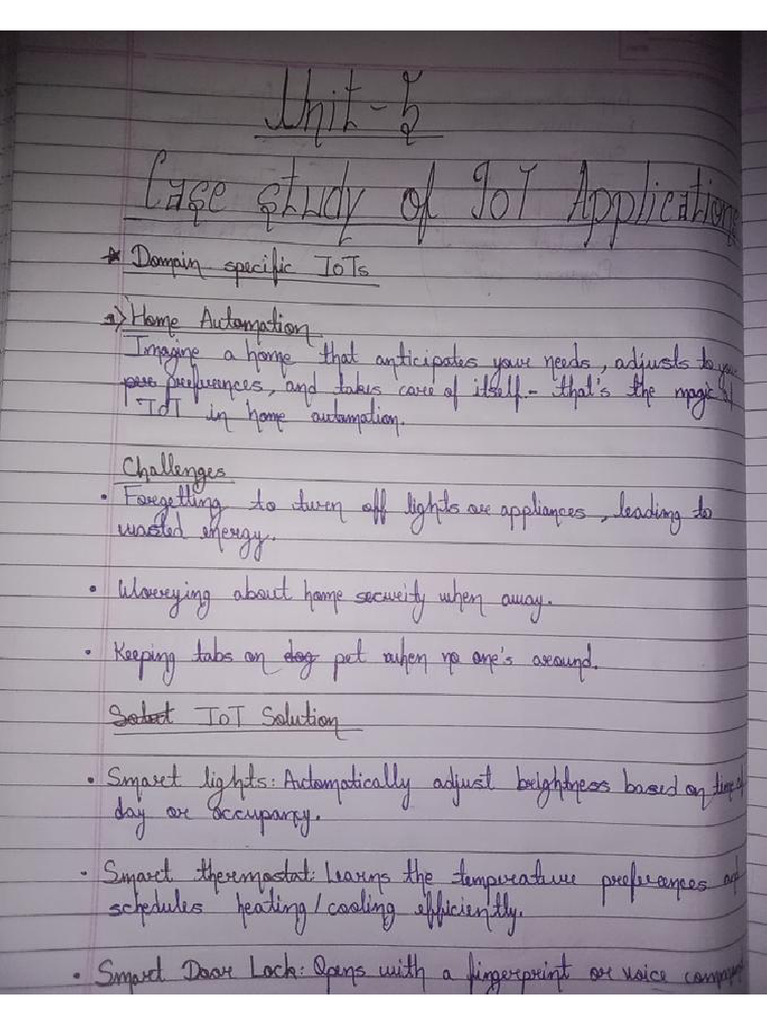 Unit - 5
Case study of IoT Applications
* Domain specific IoTs
a) Home Automation
Imagine a home that anticipates your needs, adjusts to your
preferences, and takes care of itself - that's the magic of
IoT in home automation.
Challenges
• Forgetting to turn off lights or appliances, leading to
wasted energy.
• Worrying about home security when away.
• Keeping tabs on dog pet when no one's around.
IoT Solution
• Smart lights: Automatically adjust brightness based on time of
day or occupancy.
• Smart thermostat: Learns the temperature preferences and
schedules heating/cooling efficiently.
• Smart Door Lock: Opens with a fingerprint or voice